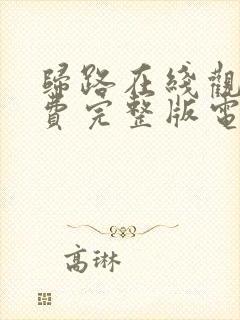 歸路在綫觀
費完整版電
高琳